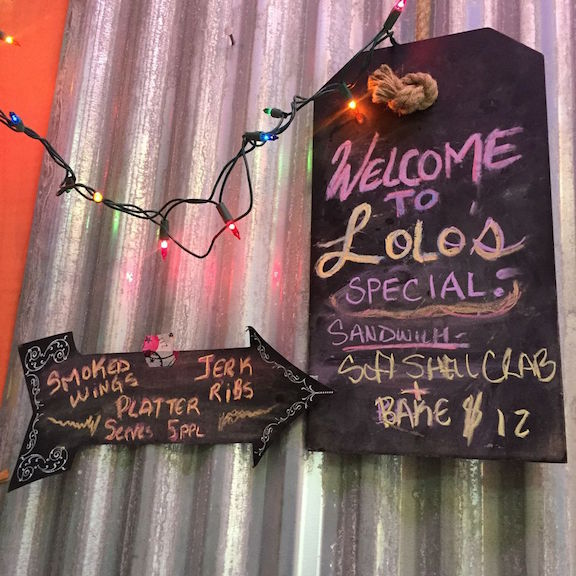 WELCOME
TO
Lolo's
SPECIAL:
SANDWICH
SOFT SHELL CRAB
+
BAKE $12
SMOKED JERK
WINGS RIBS
PLATTER
SERVES 5PPL